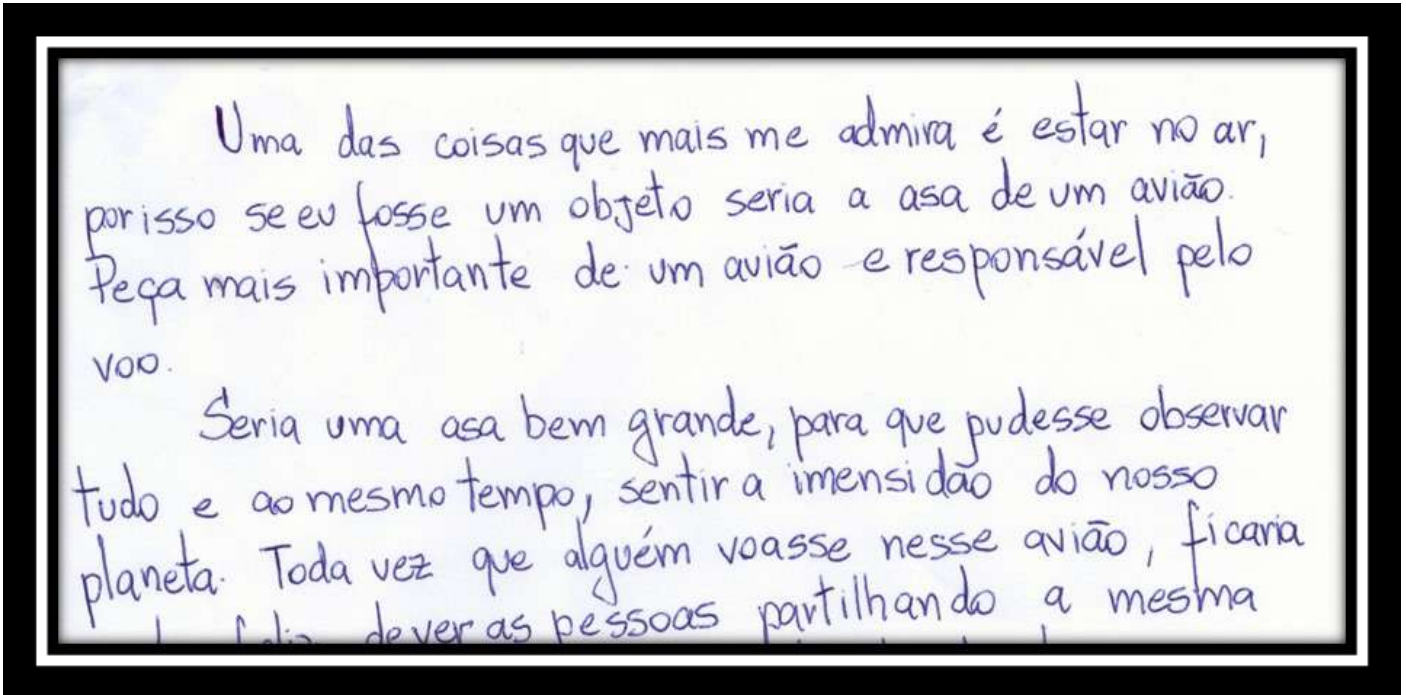 Uma das coisas que mais me admira é estar no ar,
por isso se eu fosse um objeto seria a asa de um avião.
Peça mais importante de um avião e responsável pelo
voo.
Seria uma asa bem grande, para que pudesse observar
tudo e ao mesmo tempo, sentir a imensidão do nosso
planeta. Toda vez que alguém voasse nesse avião, ficaria
feliz de ver as pessoas partilhando a mesma